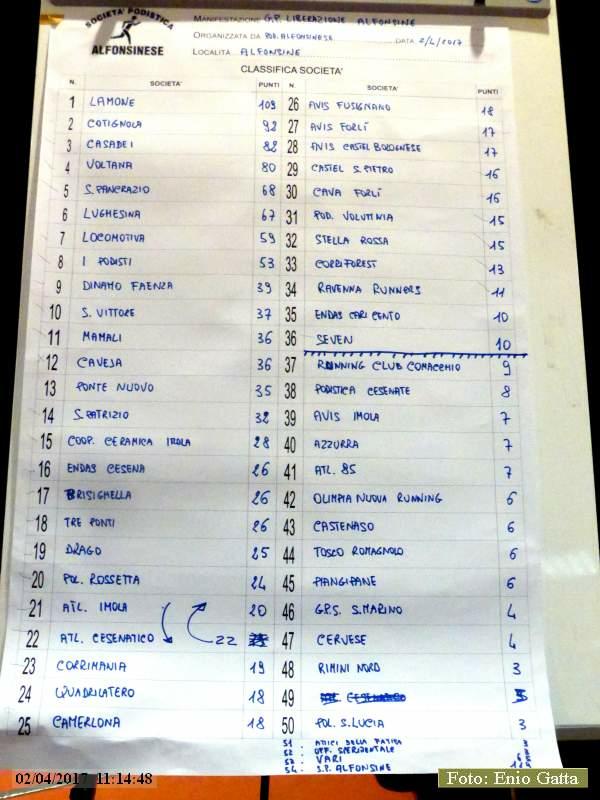 SOCIETA' PODISTICA
ALFONSINESE
MANIFESTAZIONE G.P. LIBERAZIONE ALFONSINE
ORGANIZZATA DA POD. ALFONSINESE DATA 2/4/2017
LOCALITA' ALFONSINE
CLASSIFICA SOCIETA'
N. SOCIETA' PUNTI N. SOCIETA' PUNTI
1 LAMONE 109
2 COTIGNOLA 92
3 CASADEI 82
4 VOLTANA 80
5 S. PANCRAZIO 68
6 LUGHESINA 67
7 LOCOMOTIVA 59
8 I PODISTI 53
9 DINAMO FAENZA 39
10 S. VITTORE 37
11 MAMALI 36
12 CAVEJA 36
13 PONTE NUOVO 35
14 S. PATRIZIO 32
15 COOP. CERAMICA IMOLA 28
16 ENDAS CESENA 26
17 BRISIGHELLA 26
18 TRE PONTI 26
19 DRAGO 25
20 POL. ROSSETTA 24
21 ATL. IMOLA 20
22 ATL. CESENATICO 22
23 CORRIMANIA 19
24 QUADRILATERO 18
25 CAMERLONA 18
26 AVIS FUSIGNANO 18
27 AVIS FORLÌ 17
28 AVIS CASTEL BOLOGNESE 17
29 CASTEL S. PIETRO 16
30 CAVA FORLÌ 16
31 POD. VOLUMNIA 15
32 STELLA ROSSA 15
33 CORRIFOREST 13
34 RAVENNA RUNNERS 11
35 ENDAS CARI CENTO 10
36 SEVEN 10
37 RUNNING CLUB COMACCHIO 9
38 PODISTICA CESENATE 8
39 AVIS IMOLA 7
40 AZZURRA 7
41 ATL. 85 7
42 OLIMPIA NUOVA RUNNING 6
43 CASTENASO 6
44 TOSCO ROMAGNOLO 6
45 PIANGIPANE 6
46 G.P.S. S. MARINO 4
47 CERVESE 4
48 RIMINI NORD 3
49
50 POL. S. LUCIA 3
51 AMICI DELLA FATICA
52 OFF. SPERIMENTALE
53 VARI
54 S.P. ALFONSINE
02/04/2017 11:14:48
Foto: Enio Gatta